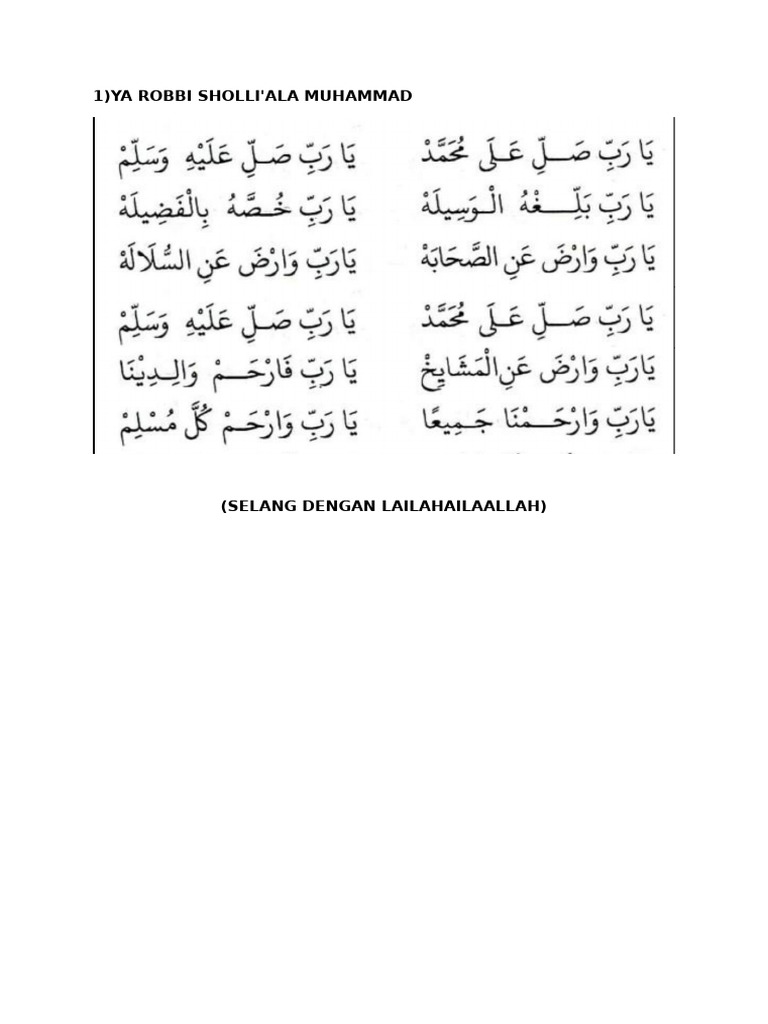 1)YA ROBBI SHOLLI'ALA MUHAMMAD
يَا رَبِّ صَلِّ عَلَى مُحَمَّدْ يَا رَبِّ صَلِّ عَلَيْهِ وَسَلِّمْ
يَا رَبِّ بَلِّغْهُ الْوَسِيلَهْ يَا رَبِّ خُصَّهُ بِالْفَضِيلَهْ
يَا رَبِّ وَارْضَ عَنِ الصَّحَابَهْ يَارَبِّ وَارْضَ عَنِ السُّلَالَهْ
يَا رَبِّ صَلِّ عَلَى مُحَمَّدْ يَا رَبِّ صَلِّ عَلَيْهِ وَسَلِّمْ
يَارَبِّ وَارْضَ عَنِ الْمَشَايِخْ يَا رَبِّ فَارْحَمْ وَالِدِيْنَا
يَارَبِّ وَارْحَمْنَا جَمِيعًا يَا رَبِّ وَارْحَمْ كُلَّ مُسْلِمْ
(SELANG DENGAN LAILAHAILAALLAH)